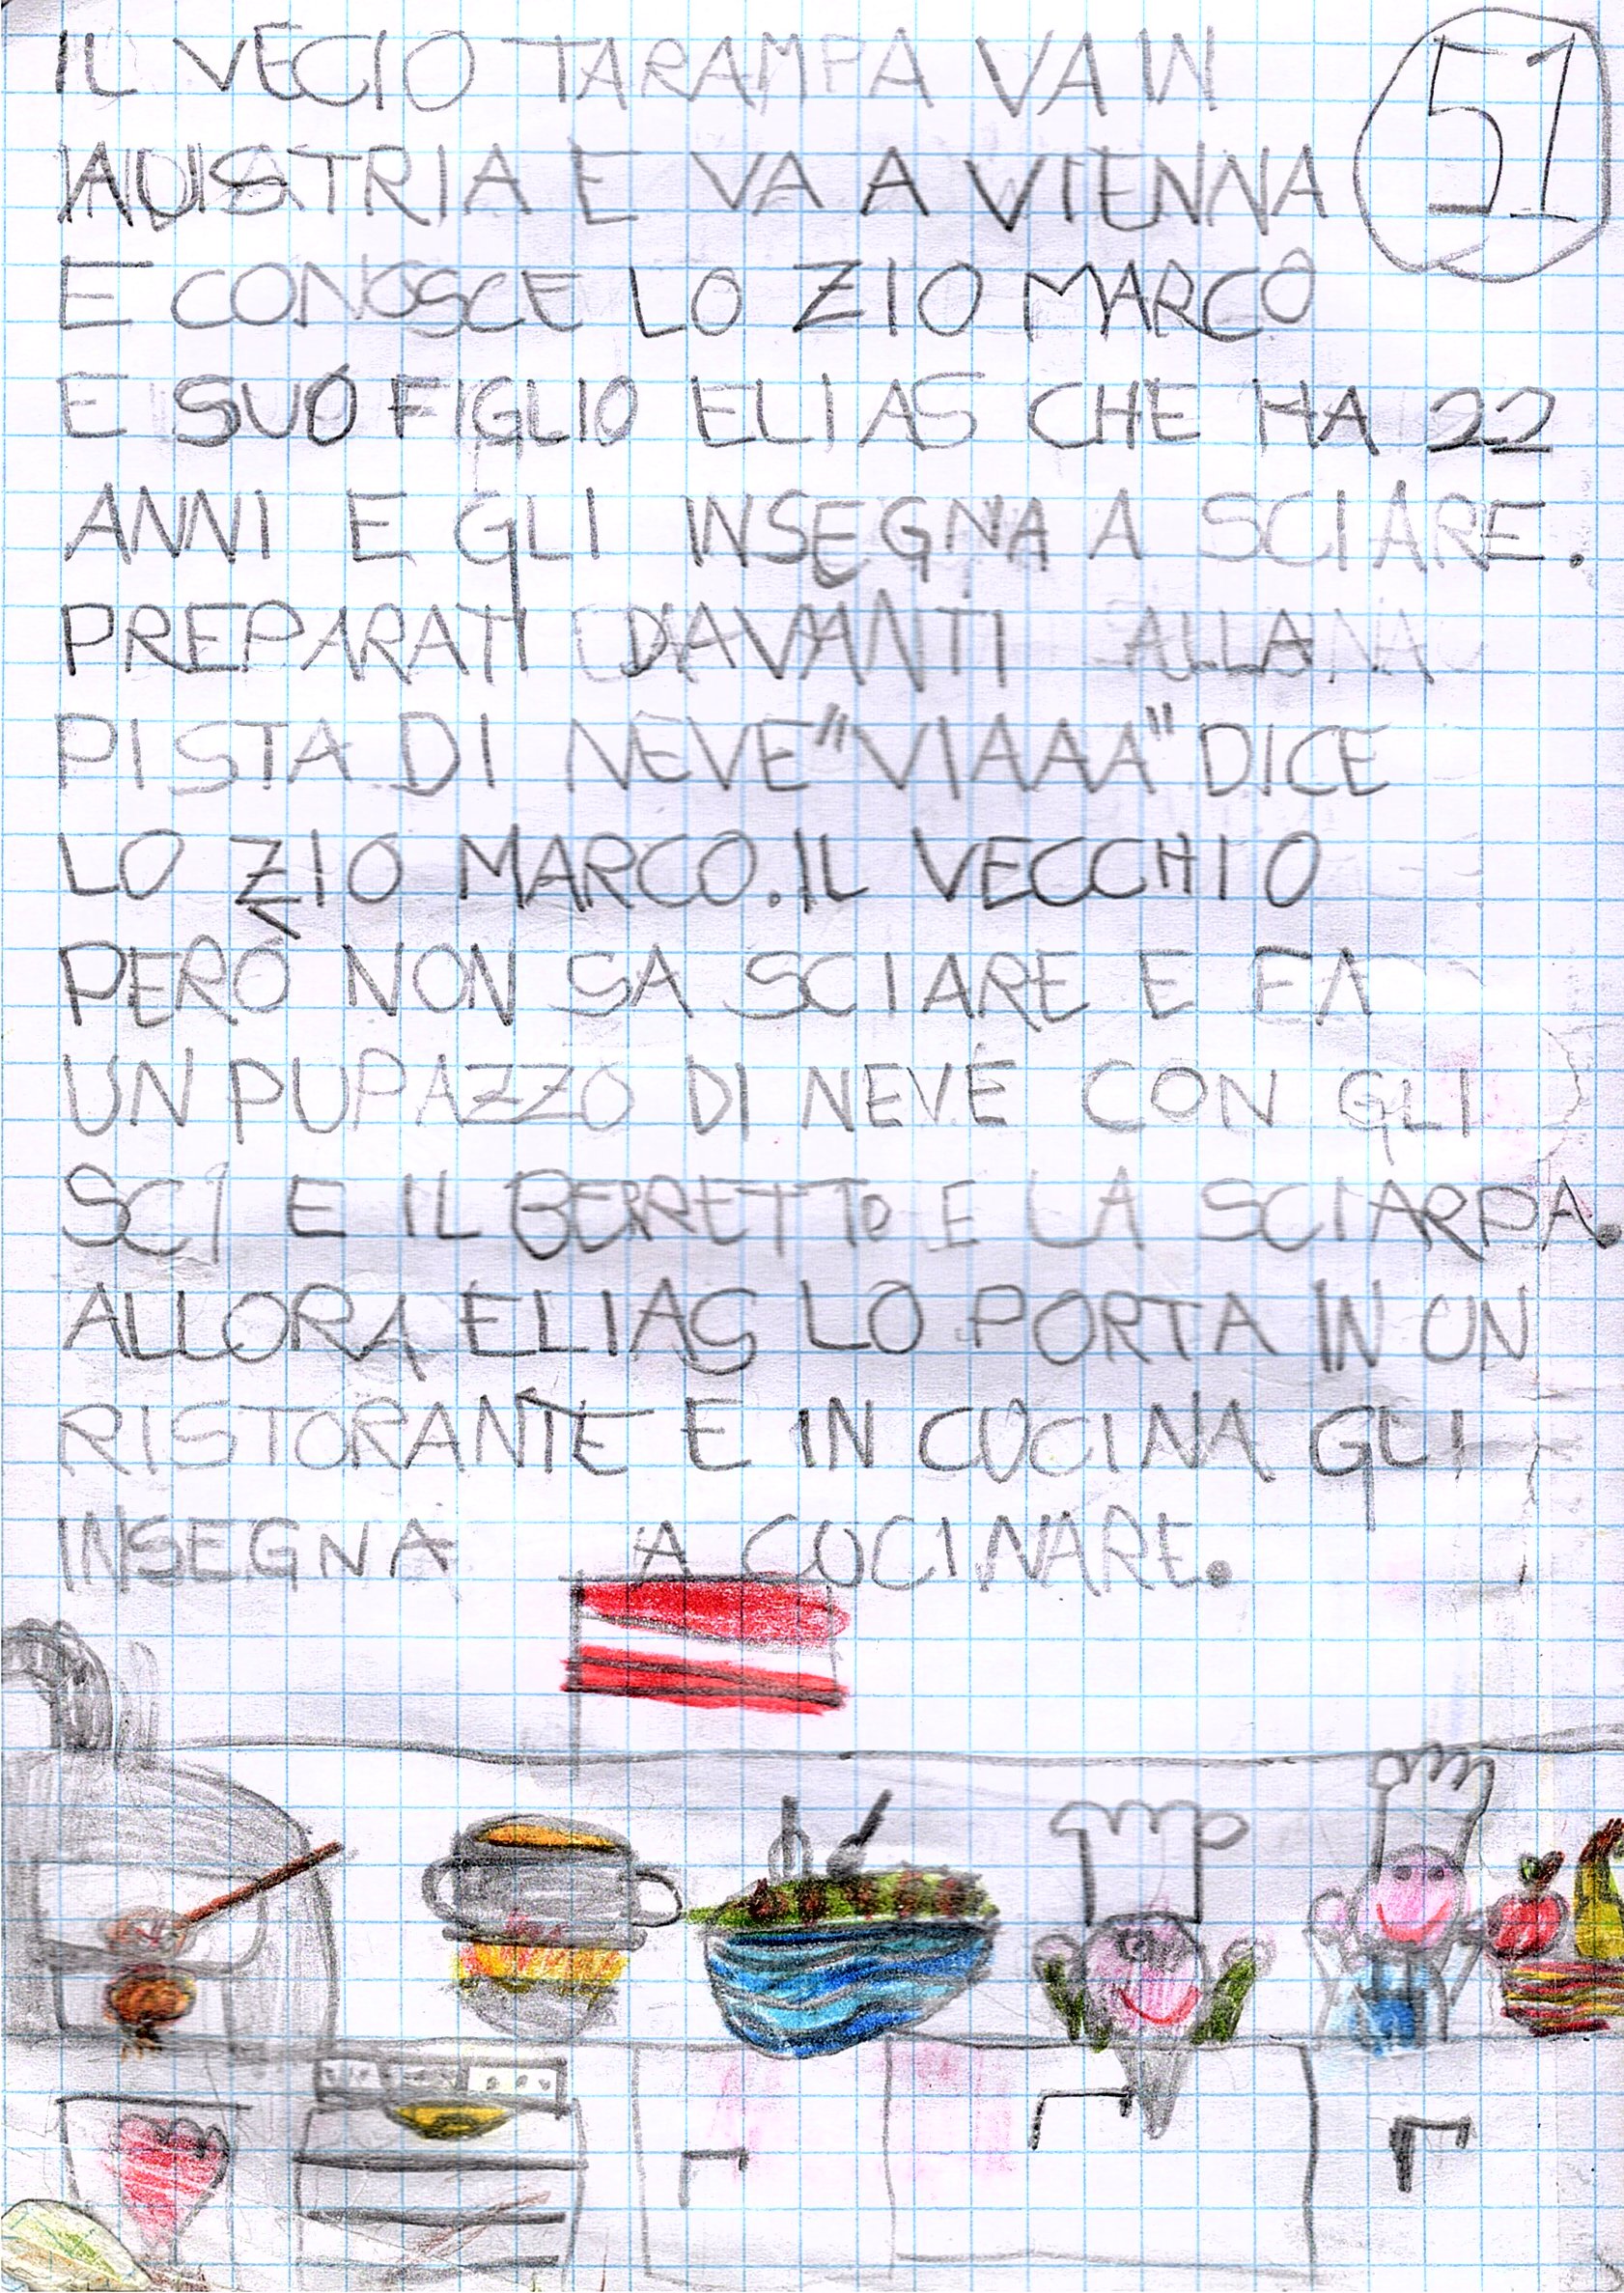 IL VECIO TARAMPA VA IN
51
AUSTRIA E VA A VIENNA
E CONOSCE LO ZIO MARCO
E SUO FIGLIO ELIAS CHE HA 22
ANNI E GLI INSEGNA A SCIARE.
PREPARATI DAVANTI ALLA
PISTA DI NEVE "VIAAA" DICE
LO ZIO MARCO. IL VECCHIO
PERÒ NON SA SCIARE E FA
UN PUPAZZO DI NEVE CON GLI
SCI E IL BERRETTO E LA SCIARPA.
ALLORA ELIAS LO PORTA IN UN
RISTORANTE E IN CUCINA GLI
INSEGNA A CUCINARE.